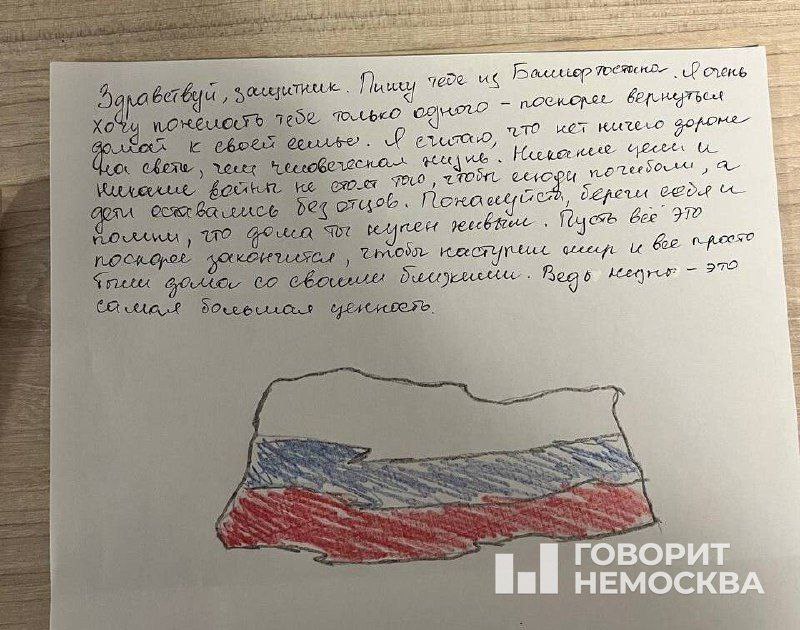 Здравствуй, защитник. Пишу тебе из Башкортостана. Я очень
хочу пожелать тебе только одного - поскорее вернуться
домой к своей семье. Я считаю, что нет ничего дороже
на свете, чем человеческая жизнь. Никакие цели и
никакие войны не стоят того, чтобы люди погибали, а
дети оставались без отцов. Пожалуйста, береги себя и
помни, что дома ты нужен живым. Пусть всё это
поскорее закончится, чтобы наступил мир и все просто
были дома со своими близкими. Ведь жизнь - это
самая большая ценность.
ГОВОРИТ
НЕМОСКВА